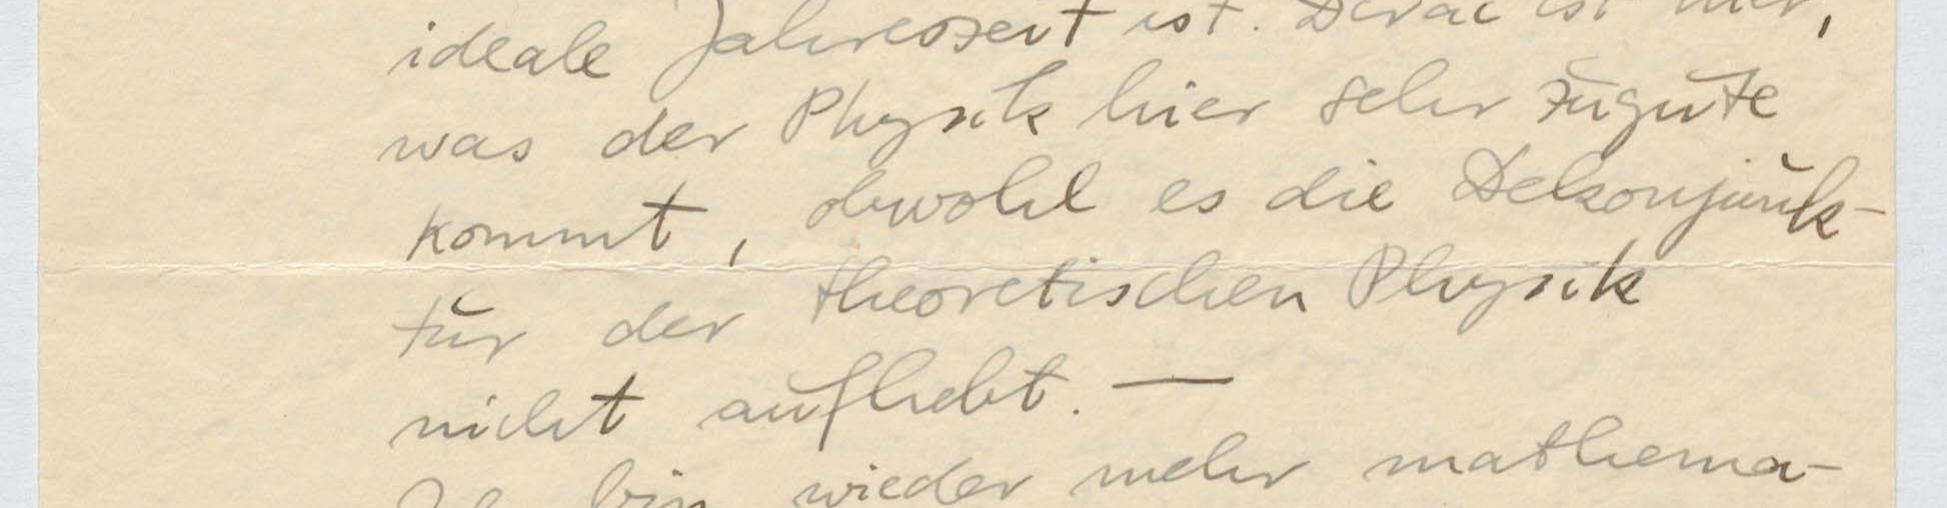 ideale Jahreszeit ist. Dirac ist hier,
was der Physik hier sehr zugute
kommt, obwohl es die Dekonjunk-
tur der theoretischen Physik
nicht aufhebt. —
Ich bin wieder mehr mathema-